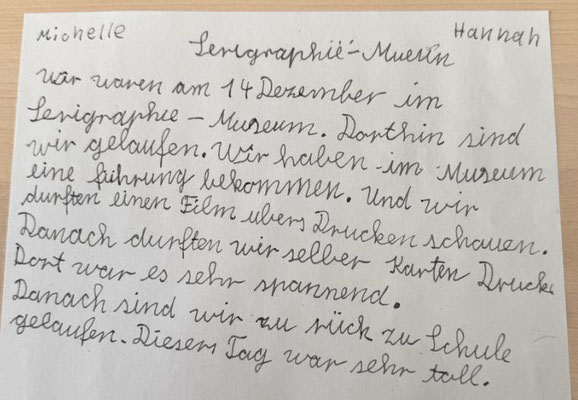 Michelle Hannah
Serigraphie-Muesün
war waren am 14 Dezember im
Serigraphie-Museum. Dorthin sind
wir gelaufen. Wir haben im Museum
eine führung bekommen. Und wir
durften einen Film ubers Drucken schauen.
Danach durften wir selber Karten Drucke
Dort war es sehr spannend.
Danach sind wir zu rück zu Schule
gelaufen. Dieser Tag war sehr toll.